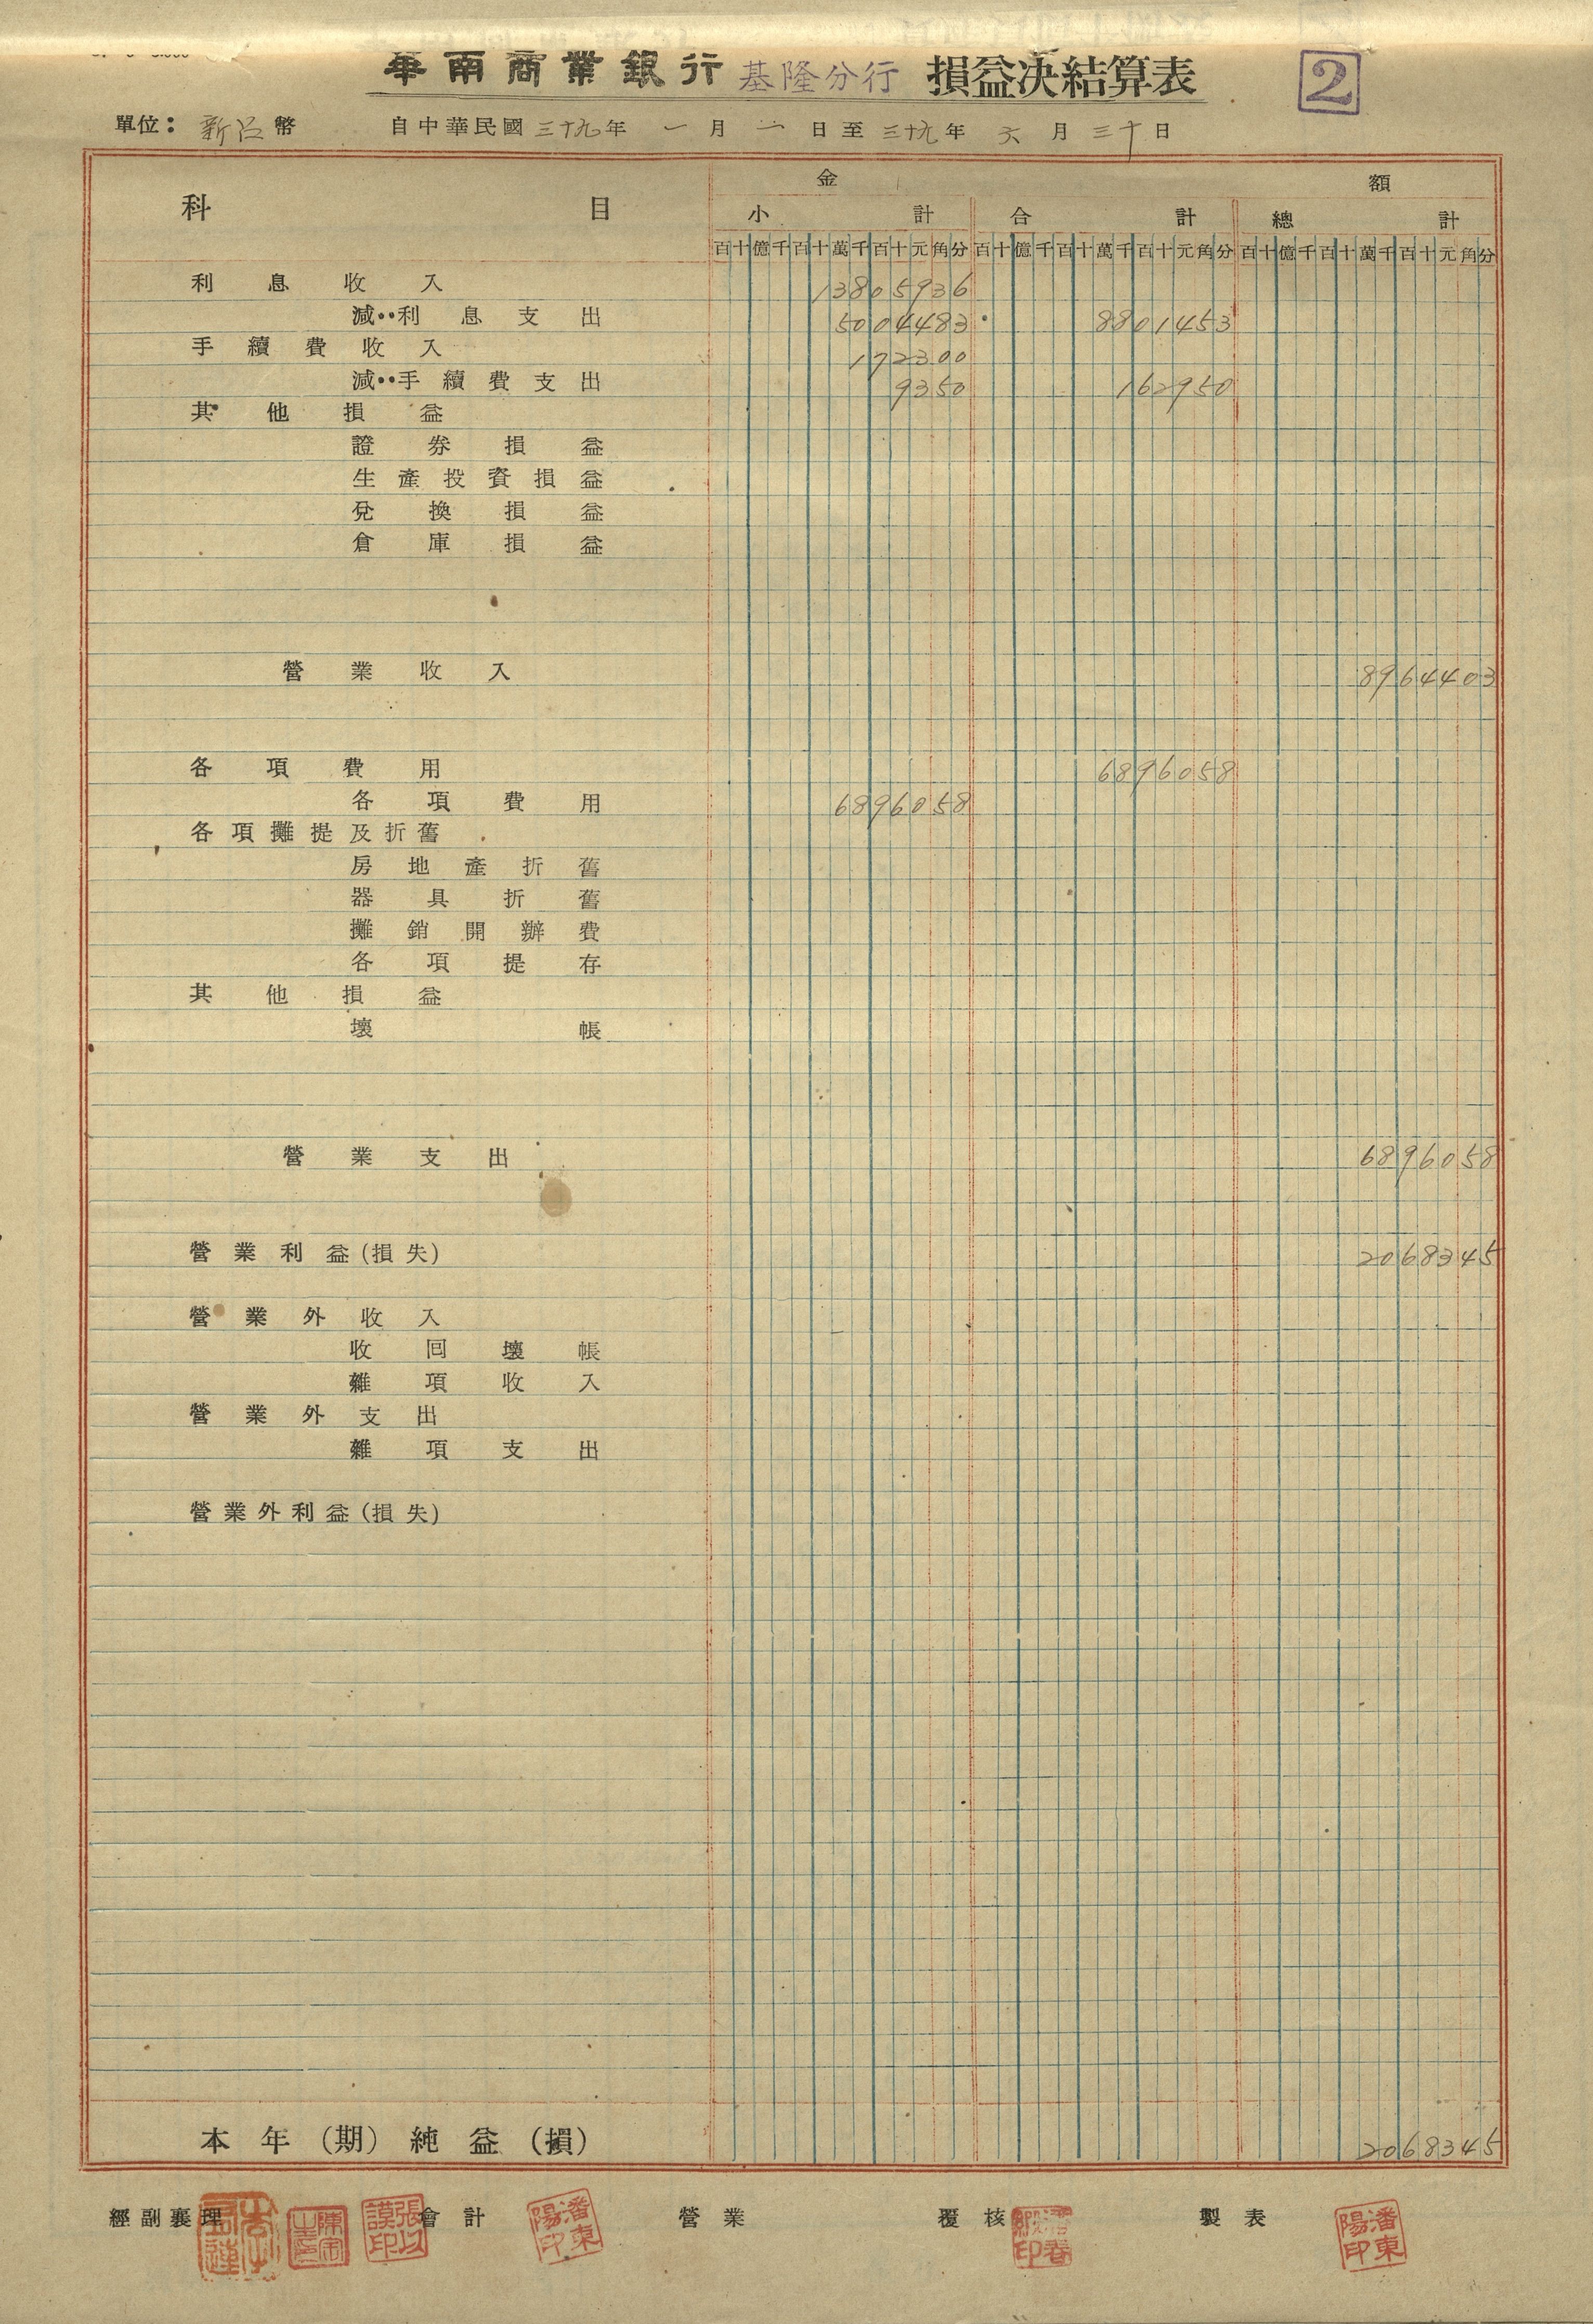 華南商業銀行 基隆分行 損益決結算表 2
單位：新台幣 自中華民國三十九年一月一日至三十九年六月三十日
科目 金額
小計 合計 總計
百十億千百十萬千百十元角分 百十億千百十萬千百十元角分 百十億千百十萬千百十元角分
利息收入 13805936
減：利息支出 5004483 8801453
手續費收入 172300
減：手續費支出 9350 162950
其他損益
證券損益
生產投資損益
兌換損益
倉庫損益
營業收入 8964403
各項費用 6896058
各項費用 6896058
各項攤提及折舊
房地產折舊
器具折舊
攤銷開辦費
各項提存
其他損益
壞帳
營業支出 6896058
營業利益(損失) 2068345
營業外收入
收回壞帳
雜項收入
營業外支出
雜項支出
營業外利益(損失)
本年(期)純益(損) 2068345
經副襄理 張以謨印 會計 潘東陽印 營業 覆核 製表 潘東陽印